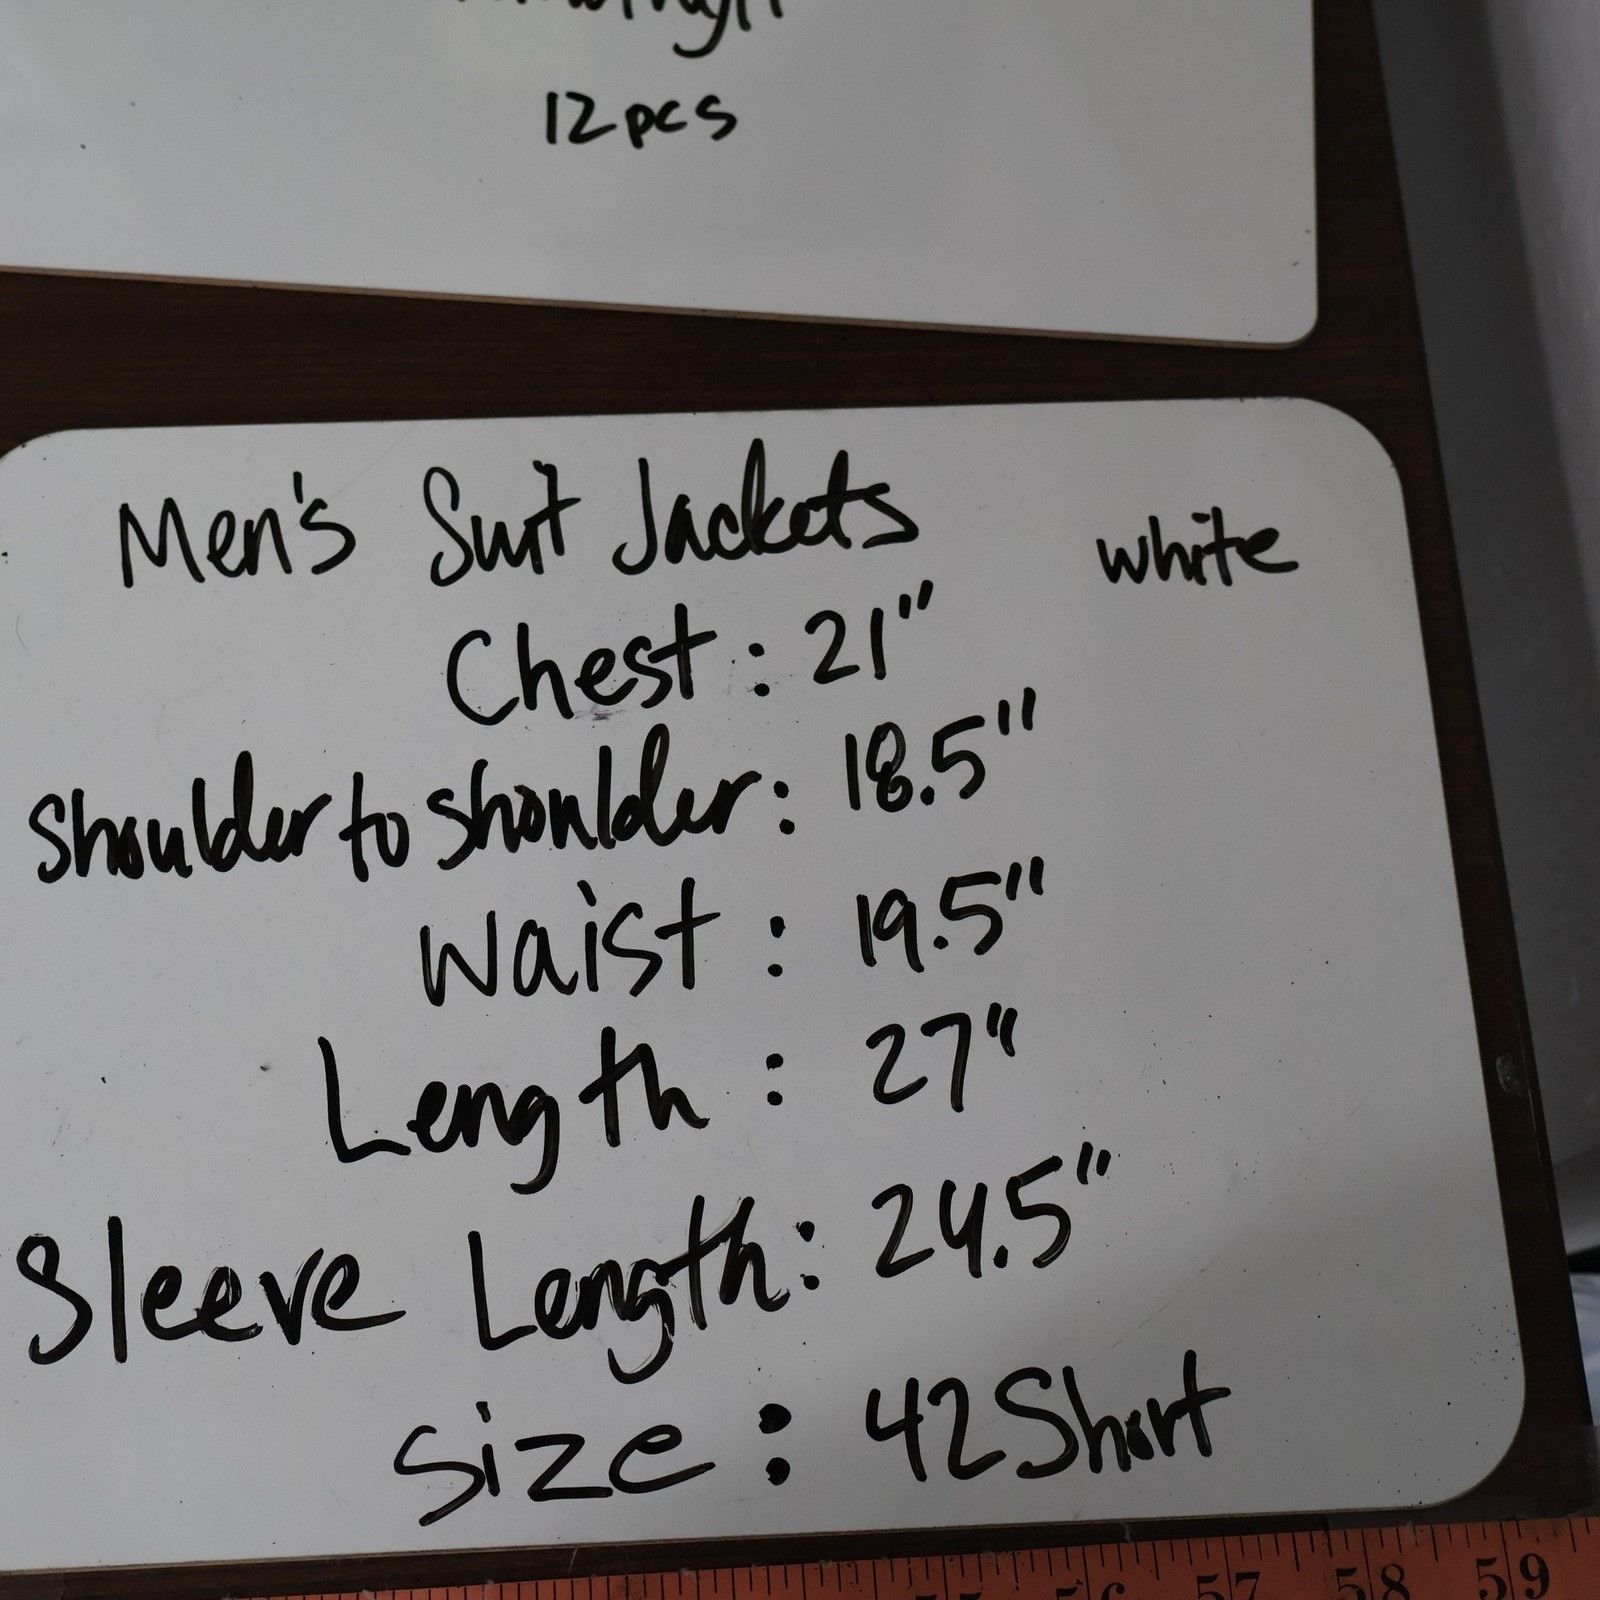 12pcs
Men's Suit Jackets white
Chest : 21"
Shoulder to shoulder : 18.5"
Waist : 19.5"
Length : 27"
Sleeve Length : 24.5"
Size : 42 Short
55 56 57 58 59